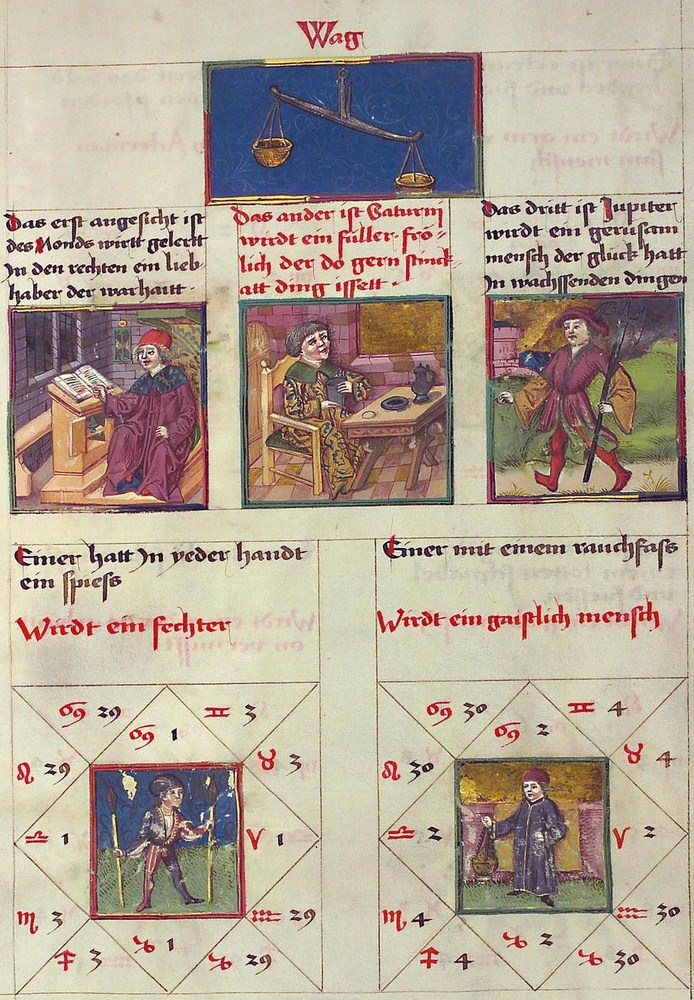 Wag
Das erst angesicht ist
des Monds wirtt gelertt
Jn den rechten ein lieb-
haber der warhaitt ·
Das ander ist Saturni
wirdt ein füller frö-
lich der do gern stinck-
att ding issett ·
Das dritt ist Jupiter
wirdt ein gerusam
mensch der glück hatt
Jn wachssenden dingen
Einer hatt Jn yeder handt
ein spiess
Wirdt ein fechter
Einer mit einem rauchfass
Wirdt ein gaistlich mensch
♋ 29
♋ 1
♊ 3
♌ 29
♉ 3
♎ 1
♈ 1
♏ 3
♒ 29
♐ 3
♑ 1
♑ 29
♋ 30
♋ 2
♊ 4
♌ 30
♉ 4
♎ 2
♈ 2
♏ 4
♒ 30
♐ 4
♑ 2
♑ 30